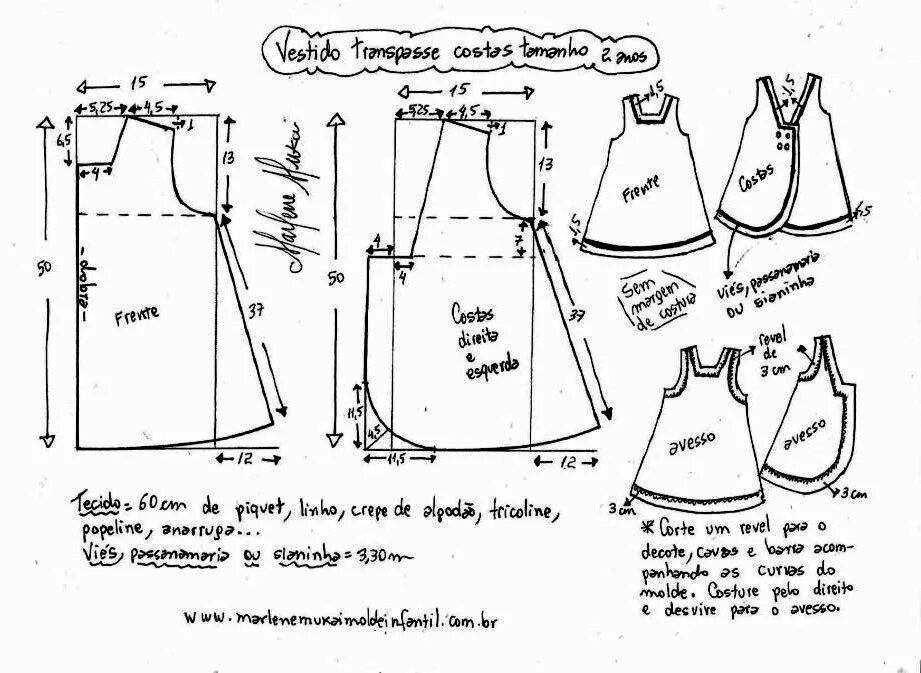 Vestido transpasse costas tamanho 2 anos
15
5,25 4,5
1
6,5
4
13
50
dobra
Frente
37
12
Marlene Mukai
15
5,25 4,5
1
13
50
4
4
7
Costas
direita
e
esquerda
37
11,5
4,5
11,5
12
1,5
Frente
1,5
1,5
Costas
1,5
Sem
margem
de costura
viés, passamanaria
ou sianinha
revel
de
3 cm
avesso
avesso
3 cm
3 cm
Tecido = 60 cm de piquet, linho, crepe de algodão, tricoline,
popeline, anarruga...
Viés, passamanaria ou sianinha = 3,30 m
* Corte um revel para o
decote, cavas e barra acom-
panhando as curvas do
molde. Costure pelo direito
e desvire para o avesso.
www.marlenemukaimoldeinfantil.com.br